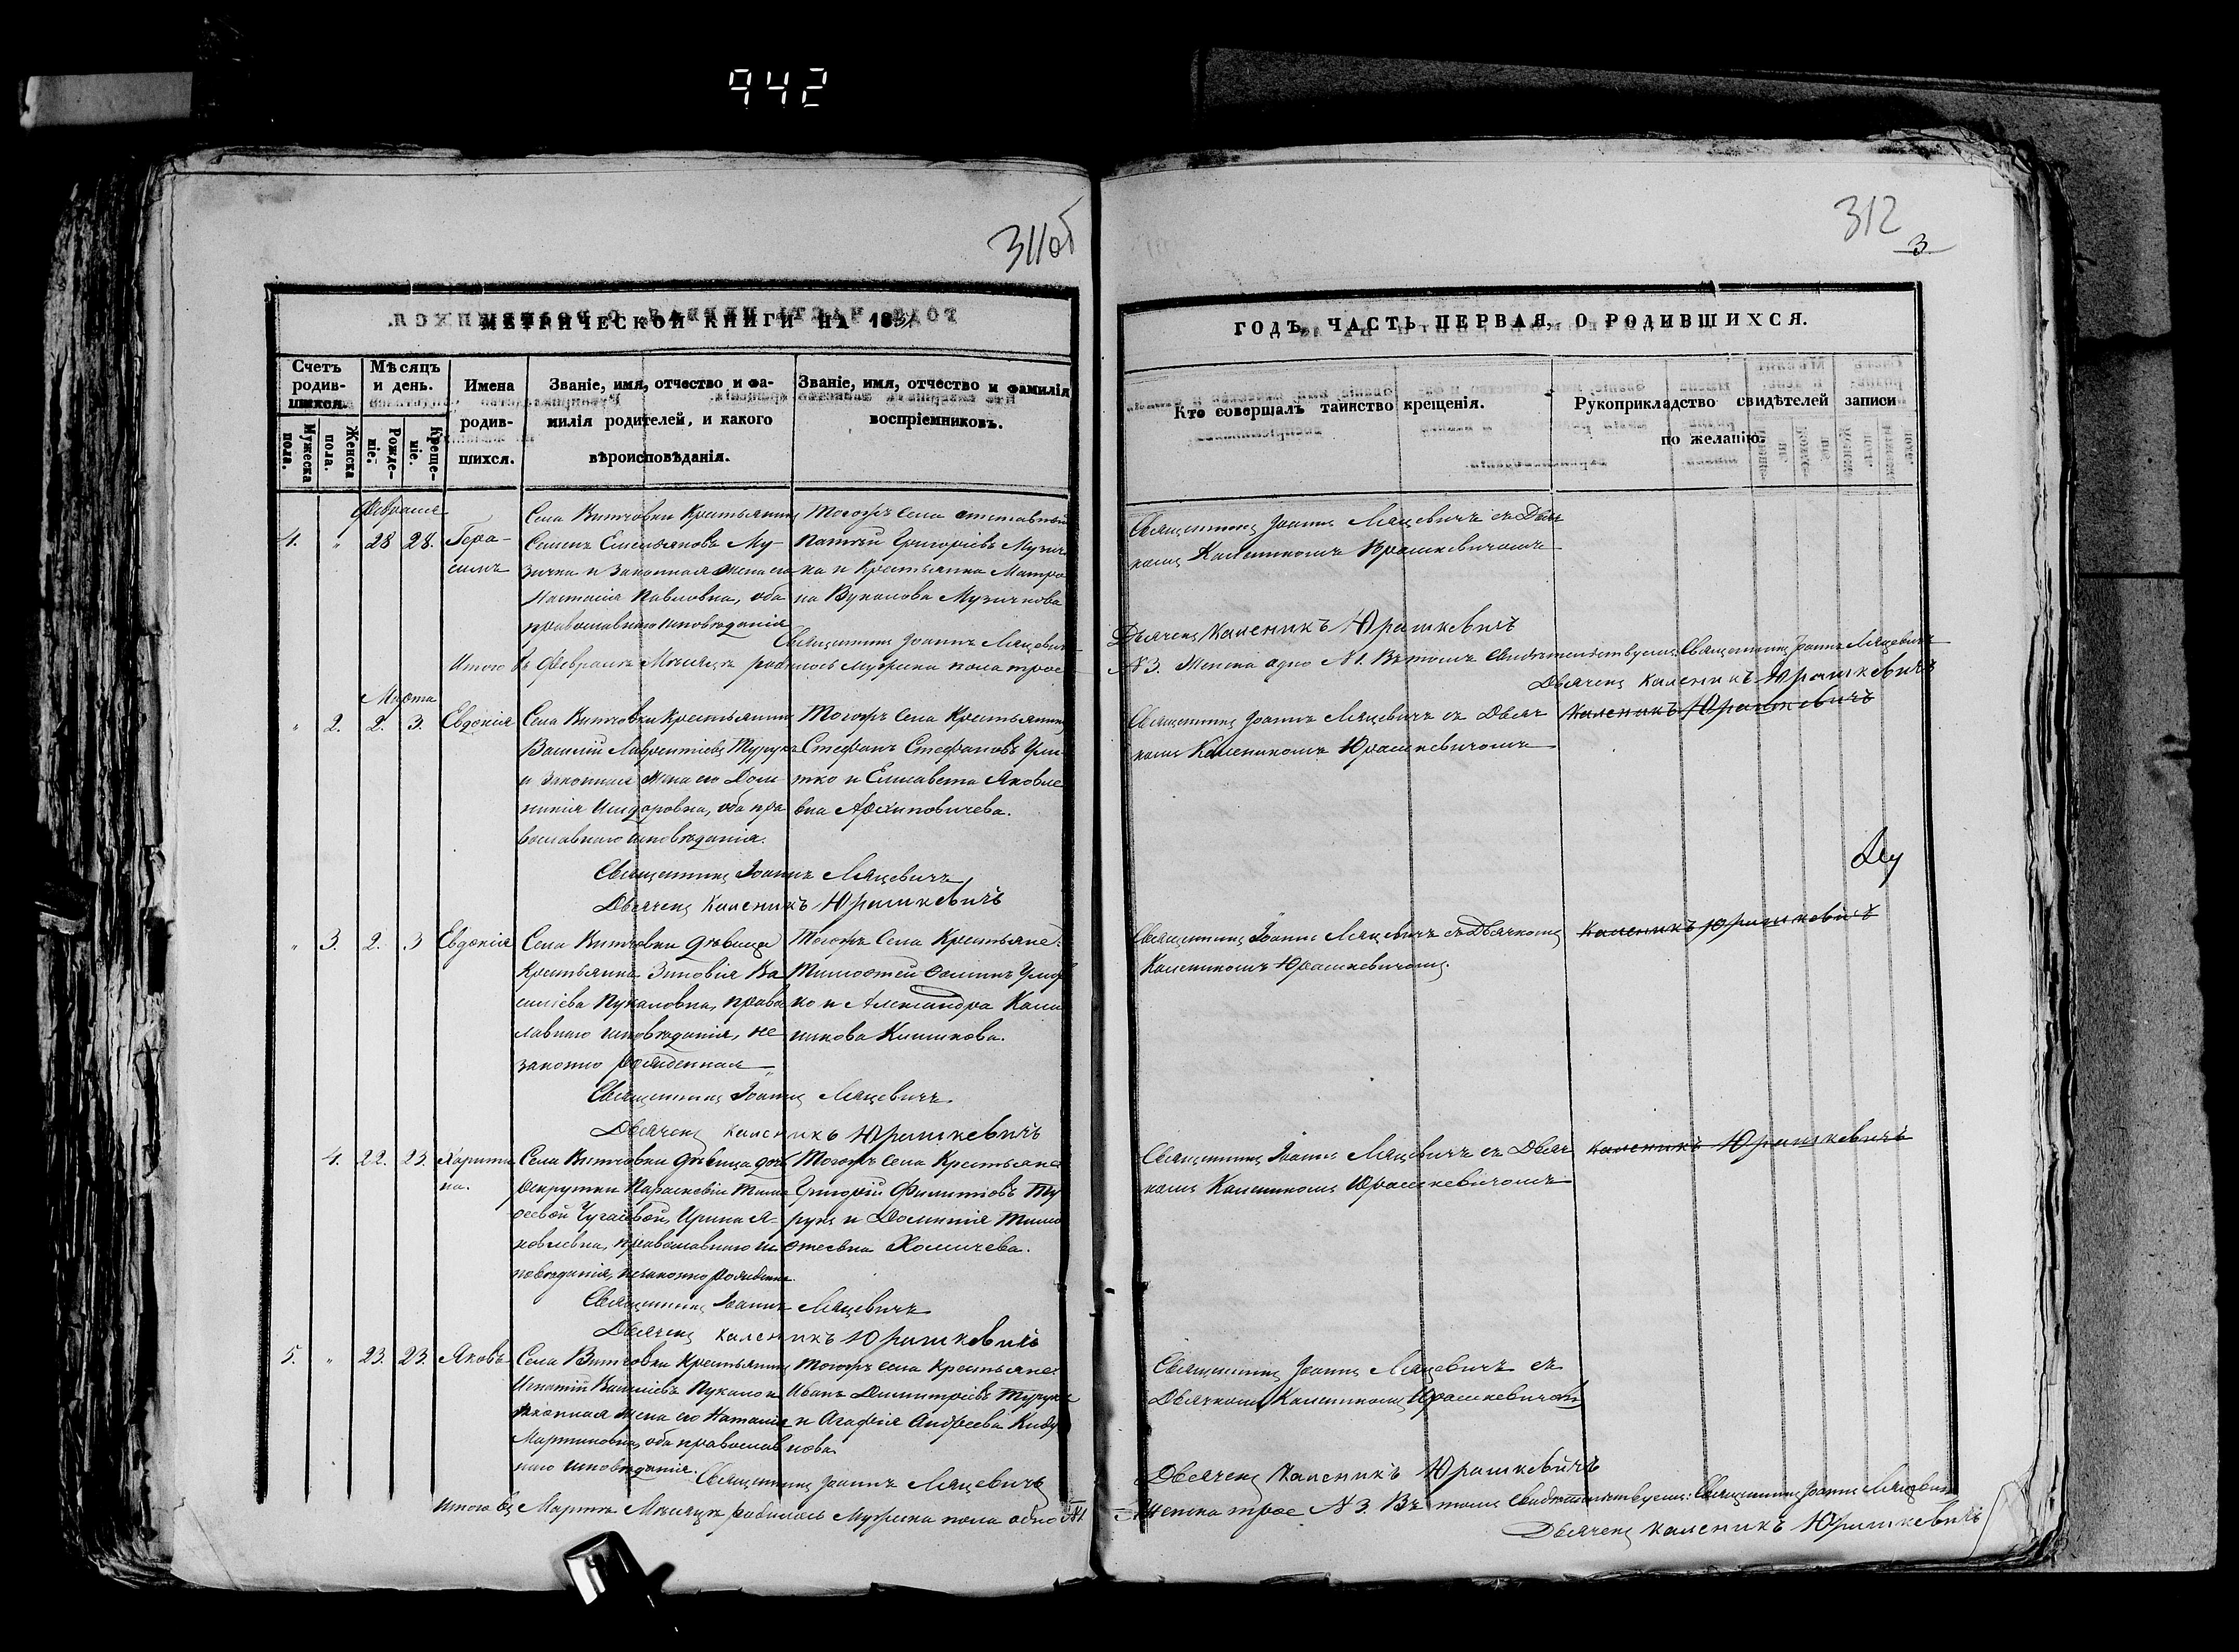 942
311об
МЕТРИЧЕСКОЙ КНИГИ НА 185
Счетъ родив-шихся.
Мѣсяцъ и день.
Имена родив-шихся.
Званіе, имя, отчество и фа-милія родителей, и какого вѣроисповѣданія.
Званіе, имя, отчество и фамилія воспріемниковъ.
Мужеска пола.
Женска пола.
Рожде-ніе.
Креще-ніе.
Февраля
4. " 28 28. Гера-симъ
Села Витчовки Крестьянинъ
Семенъ Емельяновъ Му-
зичка и Законная жена его
Настасія Павловна, оба
православнаго исповѣданія
Тогожъ Села отставный
Григоріевъ Музич
ка и Крестьянка Матро
на Вукалова Музичкова
Священникъ Іоаннъ Ляцевичъ
Итого въ Февралѣ Мѣсяцѣ родилось мужеска пола трое
Марта
" 2. 2. 3. Евдокія
Села Витчовки Крестьянинъ
Василій Лаврентіевъ Турукъ
и Законная Жена его Доми
никія Исидоровна, оба пра
вославнаго исповѣданія.
Тогожъ Села Крестьянинъ
Стефанъ Стефановъ
и Елисавета Яковле
вна Архиповичева.
Священникъ Іоаннъ Ляцевичъ
Дьячекъ Каленикъ Юрашкевичъ
" 3. 2. 3 Евдокія
Села Витчовки дѣвица
Крестьянка Зиновія Ва
силіева Пукаловна, право
славнаго исповѣданія, не
законно рожденная
Тогожъ Села Крестьяне:
Тимофей
ко и Александра Кали
никова
Священникъ Іоаннъ Ляцевичъ
Дьячекъ Каленикъ Юрашкевичъ
4. 22. 23. Харити на.
Села Витчовки дѣвица дочь
рекрутки Параскевіи Тимо
феевой Ирина Я-
ковлевна, православнаго ис
повѣданія, незаконно рожденна
Тогожъ Села Крестьяне
Григорій Филиповъ Ту
рукъ и Домникія Тимо
феевна Хомичева.
Священникъ Іоаннъ Ляцевичъ
Дьячекъ Каленикъ Юрашкевичъ
5. " 23. 23. Яковъ
Села Витчовки Крестьянинъ
Игнатій Василіевъ Пукало и
законная жена его Наталія
Мартиновна, оба православ
наго исповѣданія.
Тогожъ села Крестьяне:
Иванъ Димитріевъ Турукъ
и Агафія Андреева
нова
Священникъ Іоаннъ Ляцевичъ
Итого въ Мартѣ Мѣсяцѣ родилось Мужеска пола одно №1
312
3
ГОДЪ, ЧАСТЬ ПЕРВАЯ, О РОДИВШИХСЯ.
Кто совершалъ таинство крещенія.
Рукоприкладство свидѣтелей записи по желанію.
Священникъ Іоаннъ Ляцевичъ съ Дьяч
комъ Каленикомъ Юрашкевичомъ
Дьячекъ Каленикъ Юрашкевичъ
№3. Женска одно №1. Въ томъ Свидѣтельствуемъ: Священникъ Іоаннъ Ляцевичъ
Дьячекъ Каленикъ Юрашкевичъ
Священникъ Іоаннъ Ляцевичъ съ Дьяч
комъ Каленикомъ Юрашкевичомъ
Каленикъ Юрашкевичъ
Священникъ Іоаннъ Ляцевичъ съ Дьячкомъ
Каленикомъ Юрашкевичомъ.
Каленикъ Юрашкевичъ
Священникъ Іоаннъ Ляцевичъ съ Дьяч
комъ Каленикомъ Юрашкевичомъ
Каленикъ Юрашкевичъ
Священникъ Іоаннъ Ляцевичъ съ
Дьячкомъ Каленикомъ Юрашкевичомъ
Дьячекъ Каленикъ Юрашкевичъ
Женска трое №3. Въ томъ Свидѣтельствуемъ: Священникъ Іоаннъ Ляцевичъ
Дьячекъ Каленикъ Юрашкевичъ